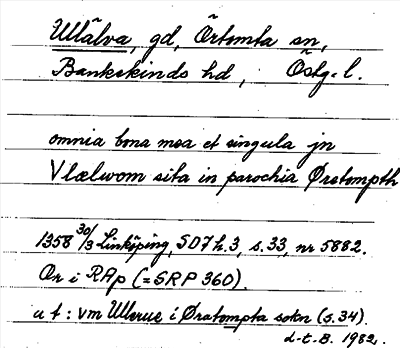 Ullälva, gd, Örtomta sn,
Bankekinds hd, Östg. l.
omnia bona mea et singula jn
Vlælwom sita in parochia Øratompth
1358 30/3 Linköping, SD7 h.3, s.33, nr 5882.
Or i RAp (=SRP 360).
u t: vm Ullerue i Øratompta sokn (s.34).
d-t.B. 1982.